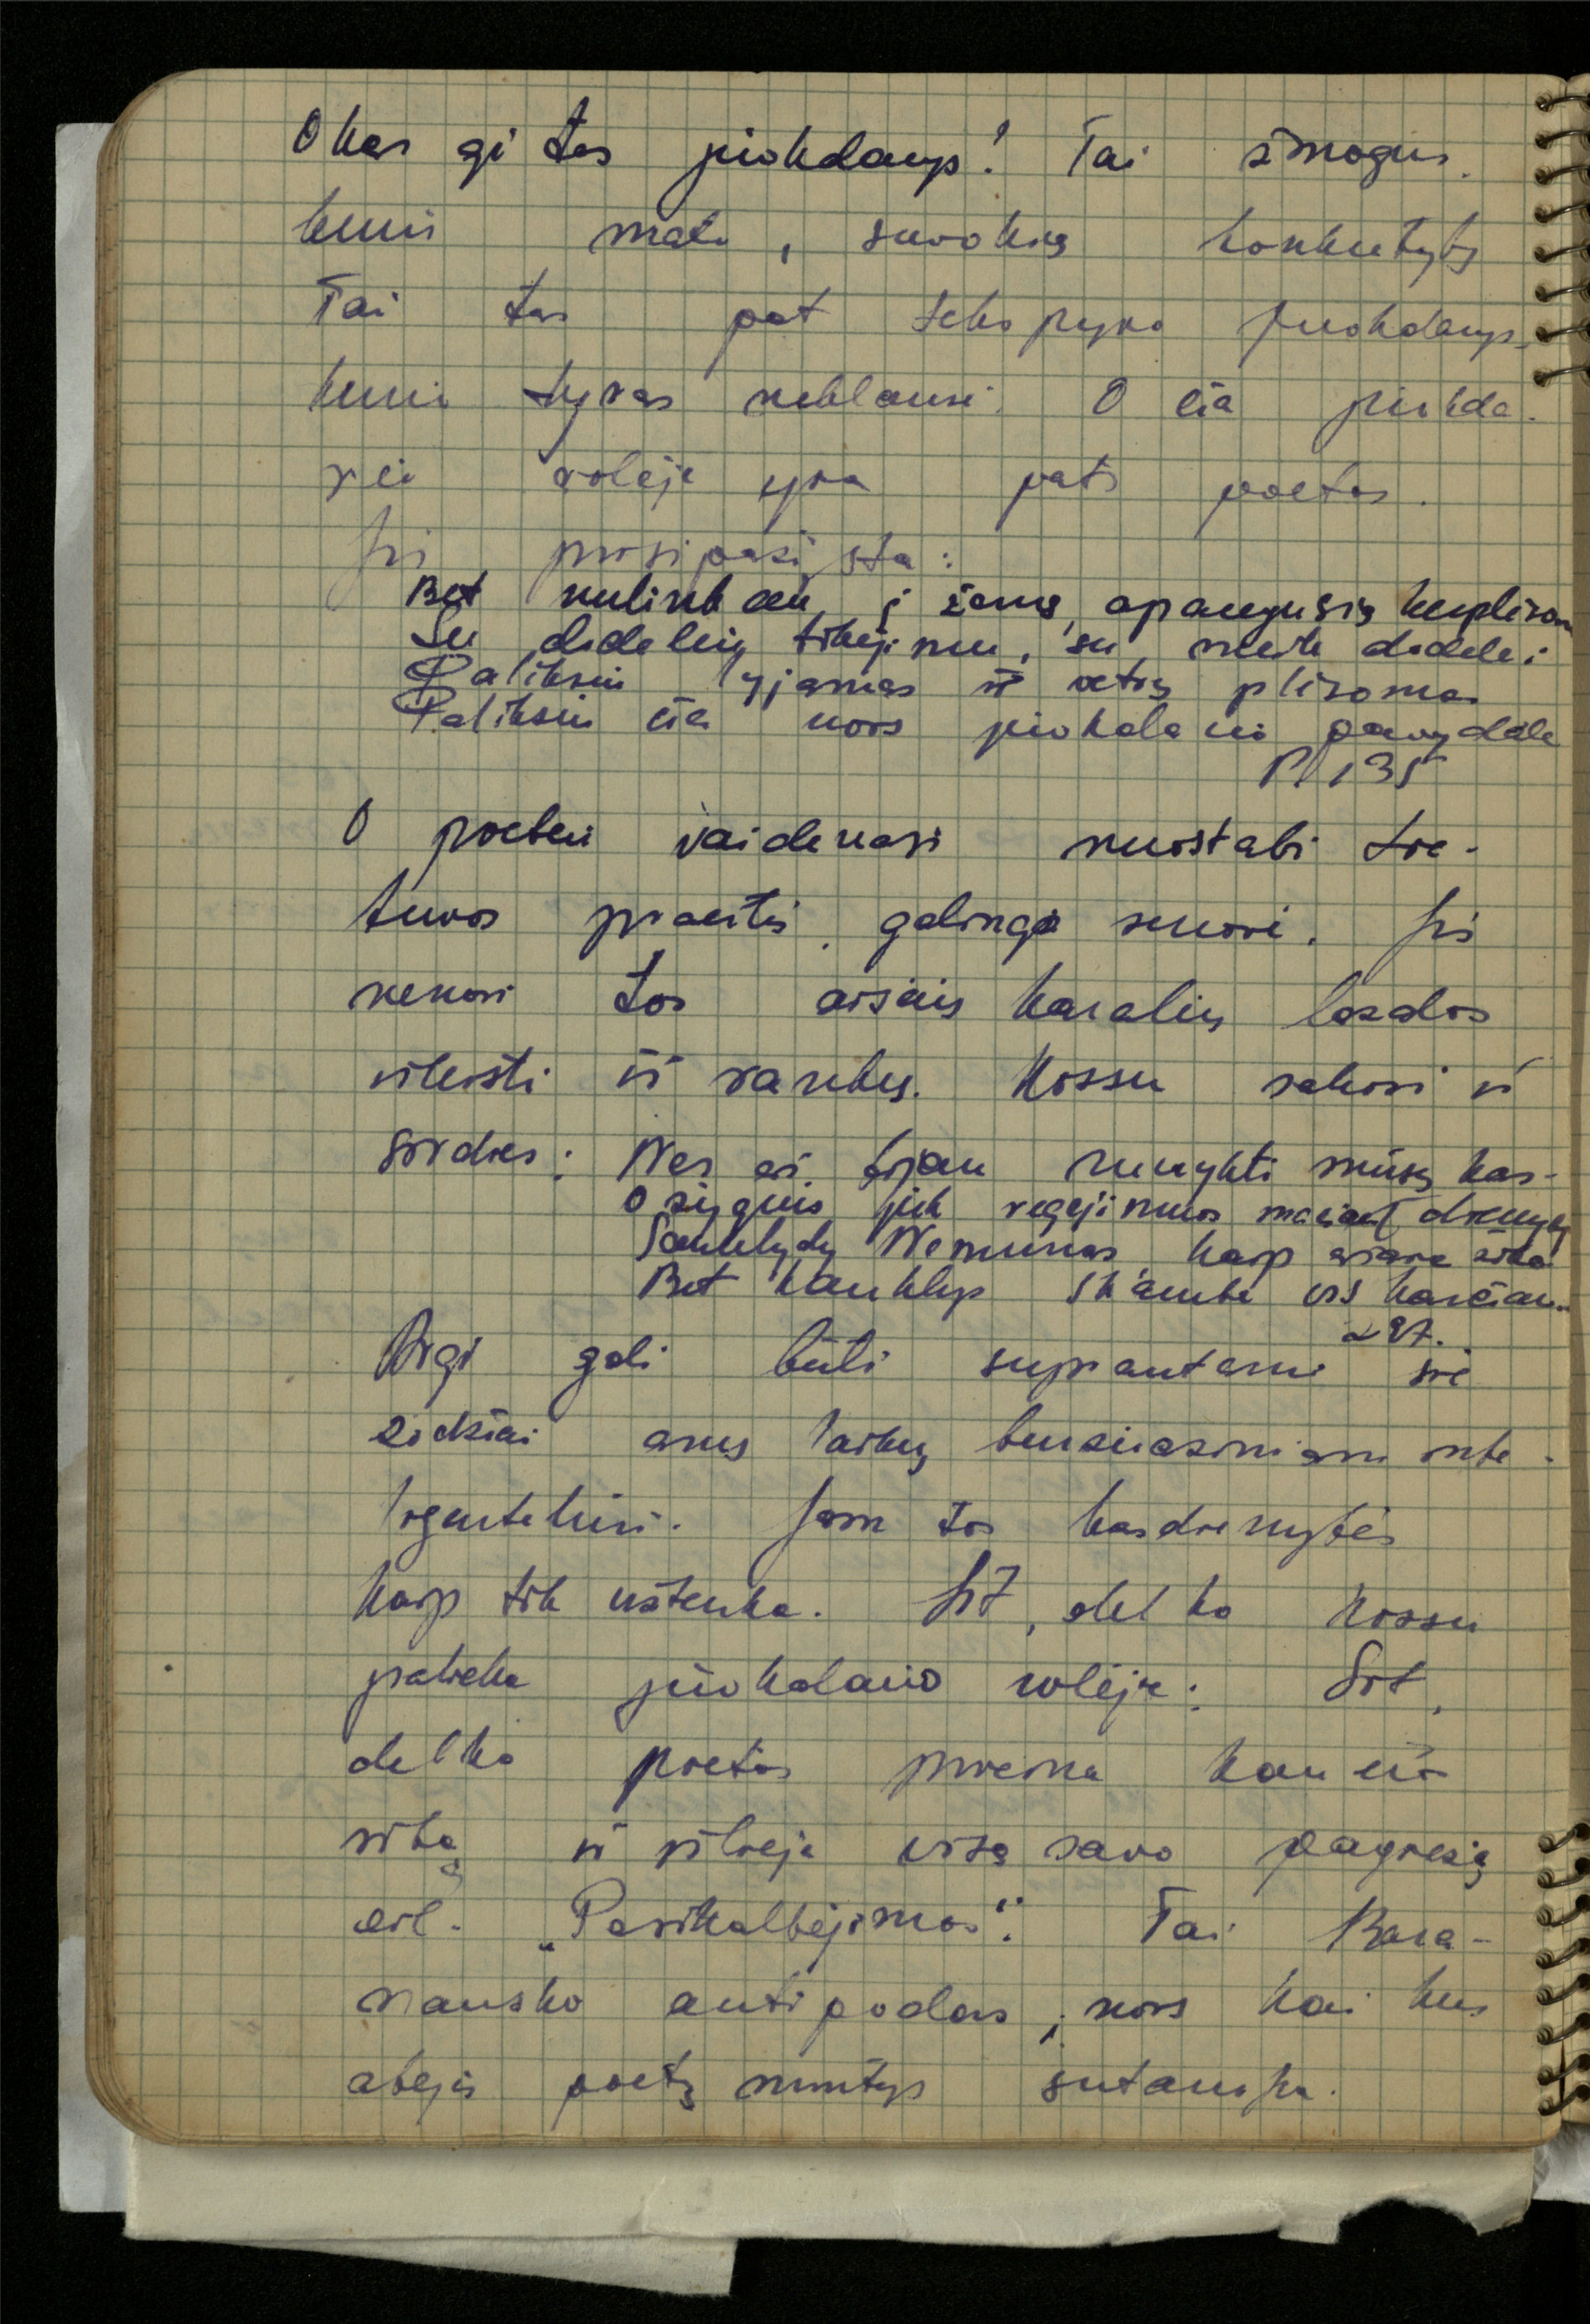 O kas gi tas juokdarys! Tai žmogus,
kuris mato, suvokia konkretybę
Tai tas pat Šekspyro juokdarys,
kurio lyras neklausė. O čia juokda-
rio rolėje yra pats poetas.
Jis prisipažįsta:
Bet nulinkau į žemę, apaugusią
Su dideliu tikėjimu, su meile didele:
Paliksiu lyjamas ir vėtrų plėšomas
Paliksiu čia nors juokdario pavydale
P 135
O poetui vaidenasi nuostabi Lie-
tuvos praeitis, galinga senovė. Jis
nenori tos aisčių karalių lazdos
išleisti iš rankų. Kossu sakosi iš
širdies: Nes aš bijau sunykti mūsų kas-
O sieguis juk regėjimuos mačiau dienynų
Sauklydų Nemunas, kaip ašara
Bet kanklys skamba vis karčiau..
297.
Argi gali būti suprantami šie
žodžiai anų laikų buržuaziniam inte-
ligentėliui. Jam tos kasdienybės
kaip tik užtenka. Štai, dėl ko Kossu
palieka juokdario rolėje: Štai,
dėl ko poetas prieina kančios
ribą ir išlieja visą savo pagiežą
eil. „Pasikalbėjimas". Tai Bara-
nausko antipodas, nors kai kur
abejų poetų mintys sutampa.